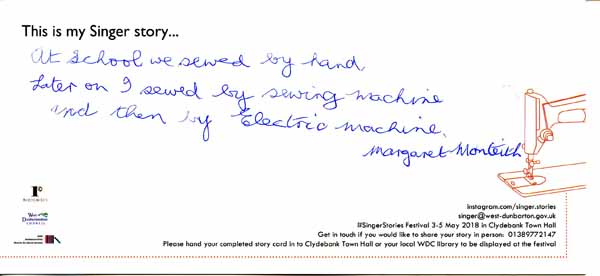 This is my Singer story...
At School we sewed by hand
Later on I sewed by sewing machine
and then by Electric machine.
Margaret Monteith
instagram.com/singer.stories
singer@west-dunbarton.gov.uk
#SingerStories Festival 3-5 May 2018 in Clydebank Town Hall
Get in touch if you would like to share your story in person: 01389772147
Please hand your completed story card in to Clydebank Town Hall or your local WDC library to be displayed at the festival